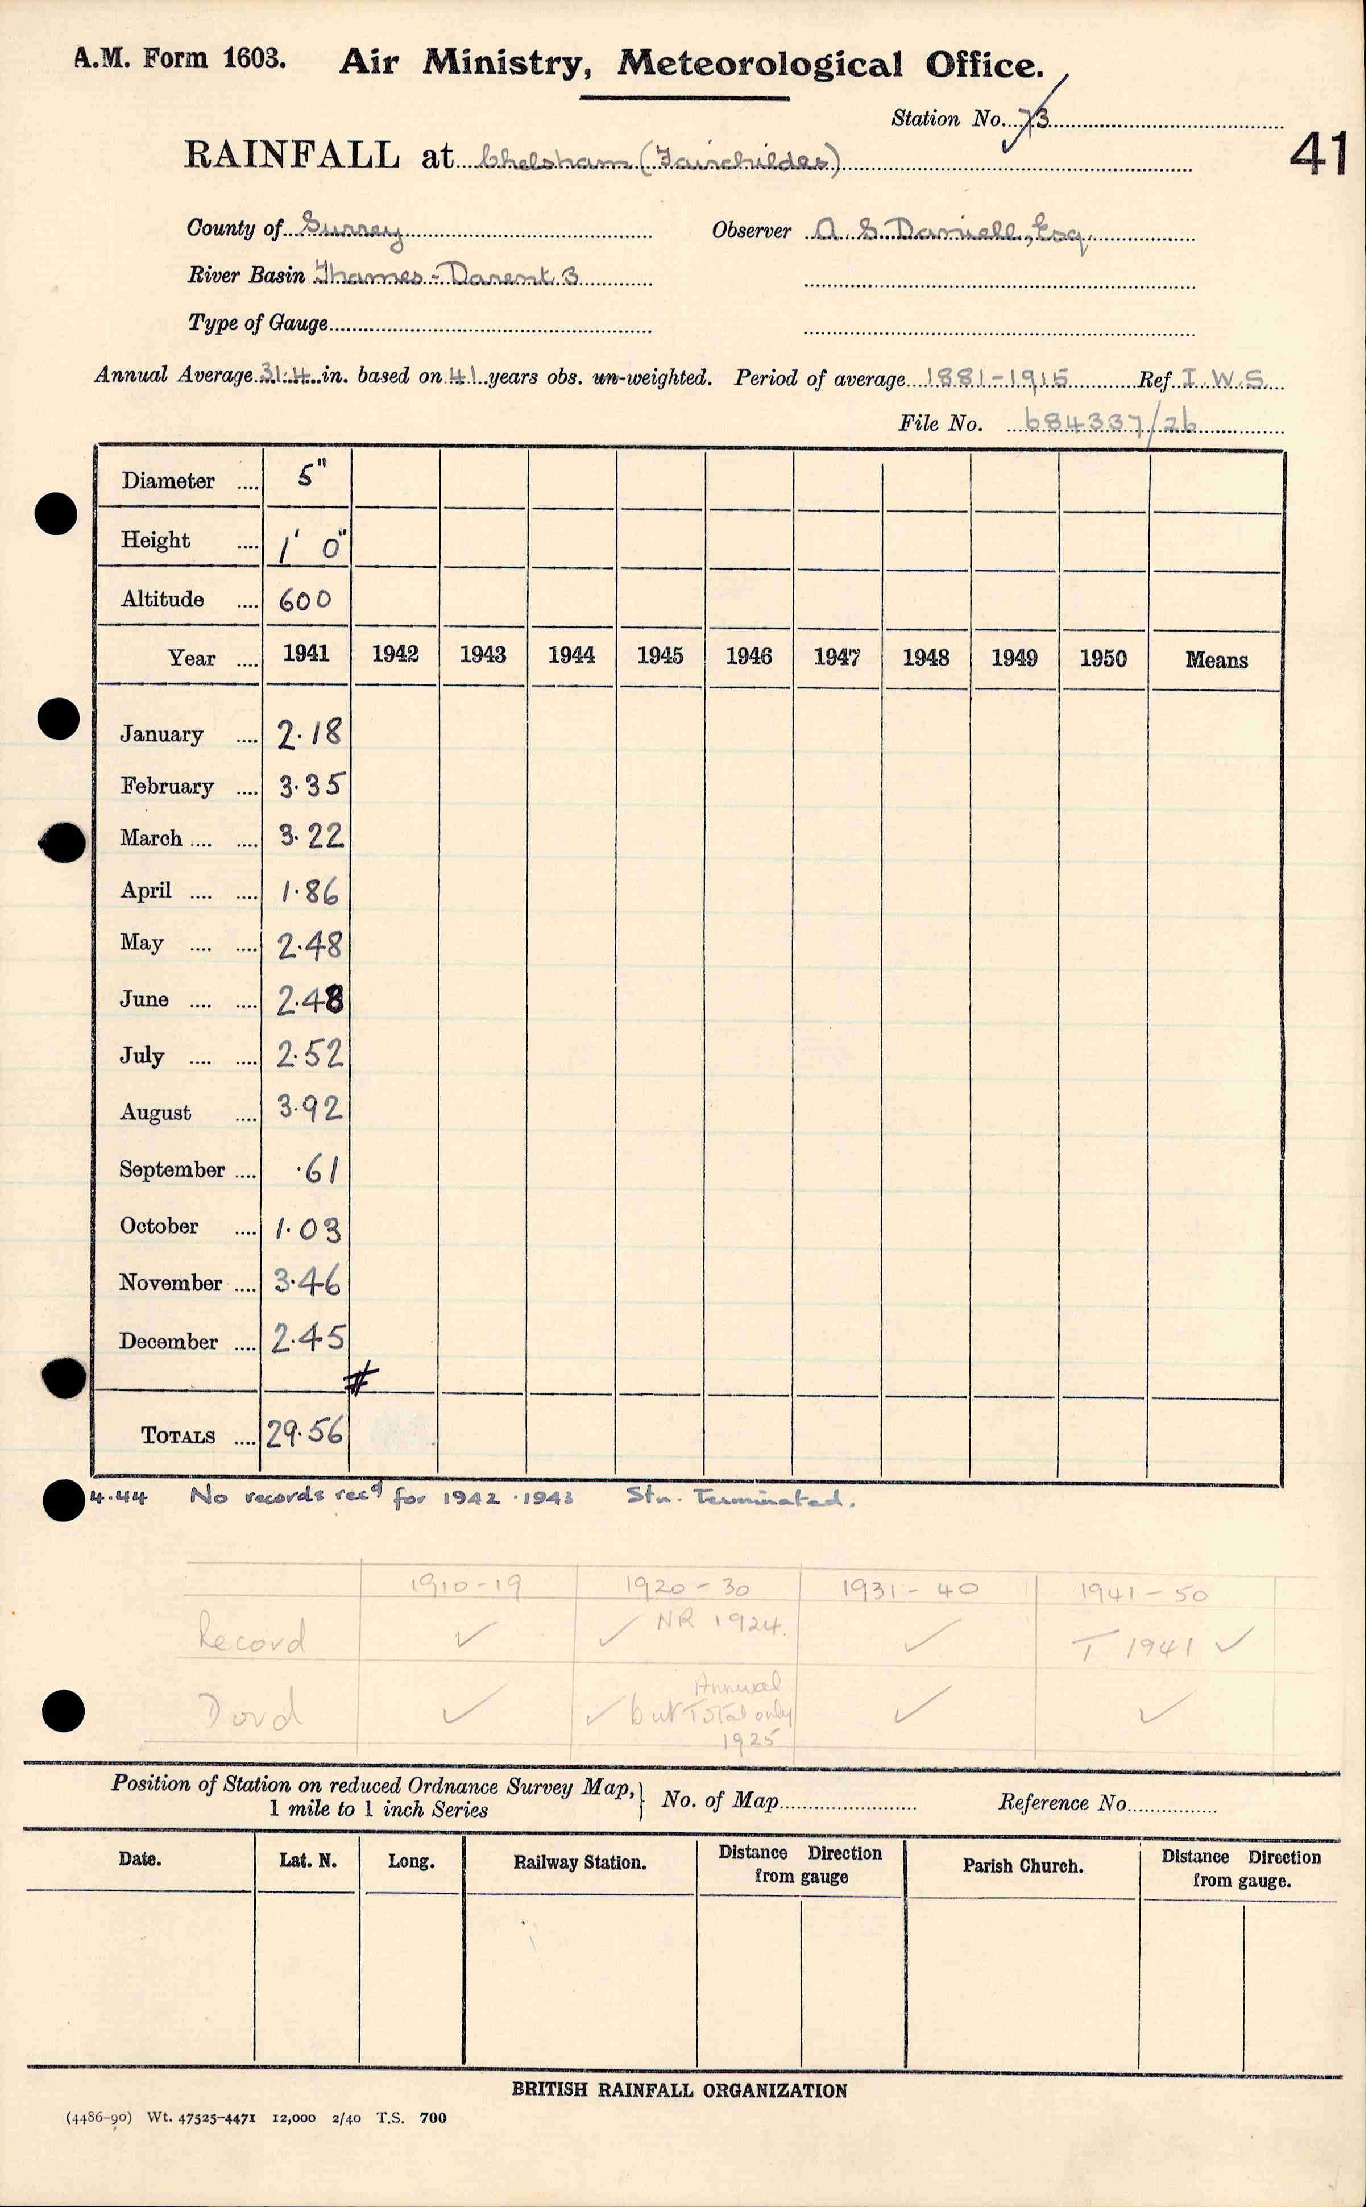 A.M. Form 1603. Air Ministry, Meteorological Office.
Station No. 73
41
RAINFALL at Chelsham (Fairchildes)
County of Surrey Observer A S Daniell, Esq.
River Basin Thames - Darent 3
Type of Gauge
Annual Average 31.4 in. based on 41 years obs. un-weighted. Period of average 1881-1915 Ref I.W.S.
File No. 684337/26
Diameter .... 5"
Height .... 1' 0"
Altitude .... 600
Year .... 1941 1942 1943 1944 1945 1946 1947 1948 1949 1950 Means
January .... 2.18
February .... 3.35
March .... .... 3.22
April .... .... 1.86
May .... .... 2.48
June .... .... 2.48
July .... .... 2.52
August .... 3.92
September .... .61
October .... 1.03
November .... 3.46
December .... 2.45
#
TOTALS .... 29.56
4.44 No records recd for 1942.1943 Stn. Terminated.
1910-19 1920-30 1931-40 1941-50
Record ✓ ✓ NR 1924. ✓ T 1941 ✓
Dord ✓ ✓ but Annual Total only 1925 ✓ ✓
Position of Station on reduced Ordnance Survey Map,} No. of Map Reference No.
1 mile to 1 inch Series
Date. Lat. N. Long. Railway Station. Distance Direction from gauge Parish Church. Distance Direction from gauge.
BRITISH RAINFALL ORGANIZATION
(4486-90) Wt. 47525-4471 12,000 2/40 T.S. 700